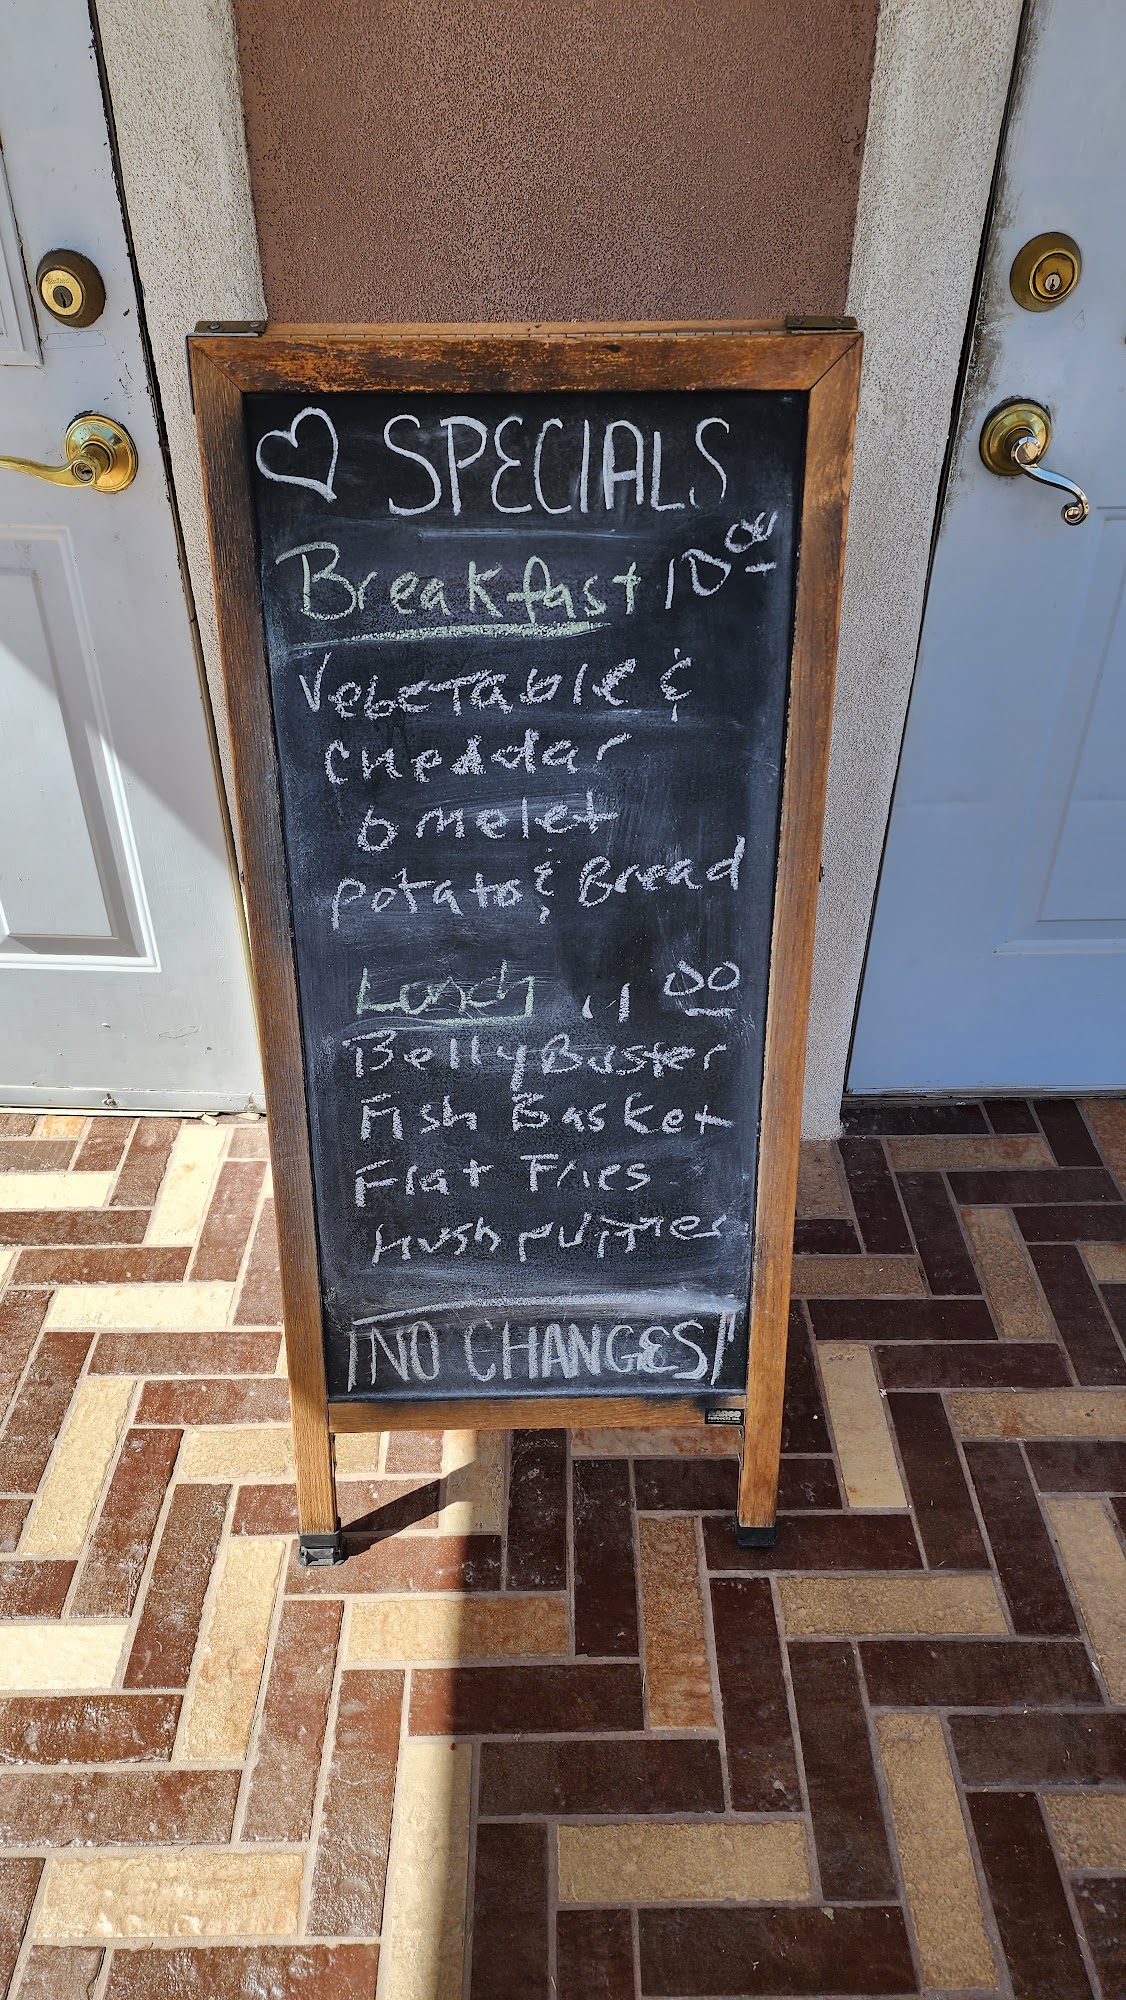 SPECIALS
Breakfast 10 00
Vegetable &
Cheddar
omelet
potato & Bread
Lunch 11 00
Belly Buster
Fish Basket
Flat Fries
Hush puppies
NO CHANGES!